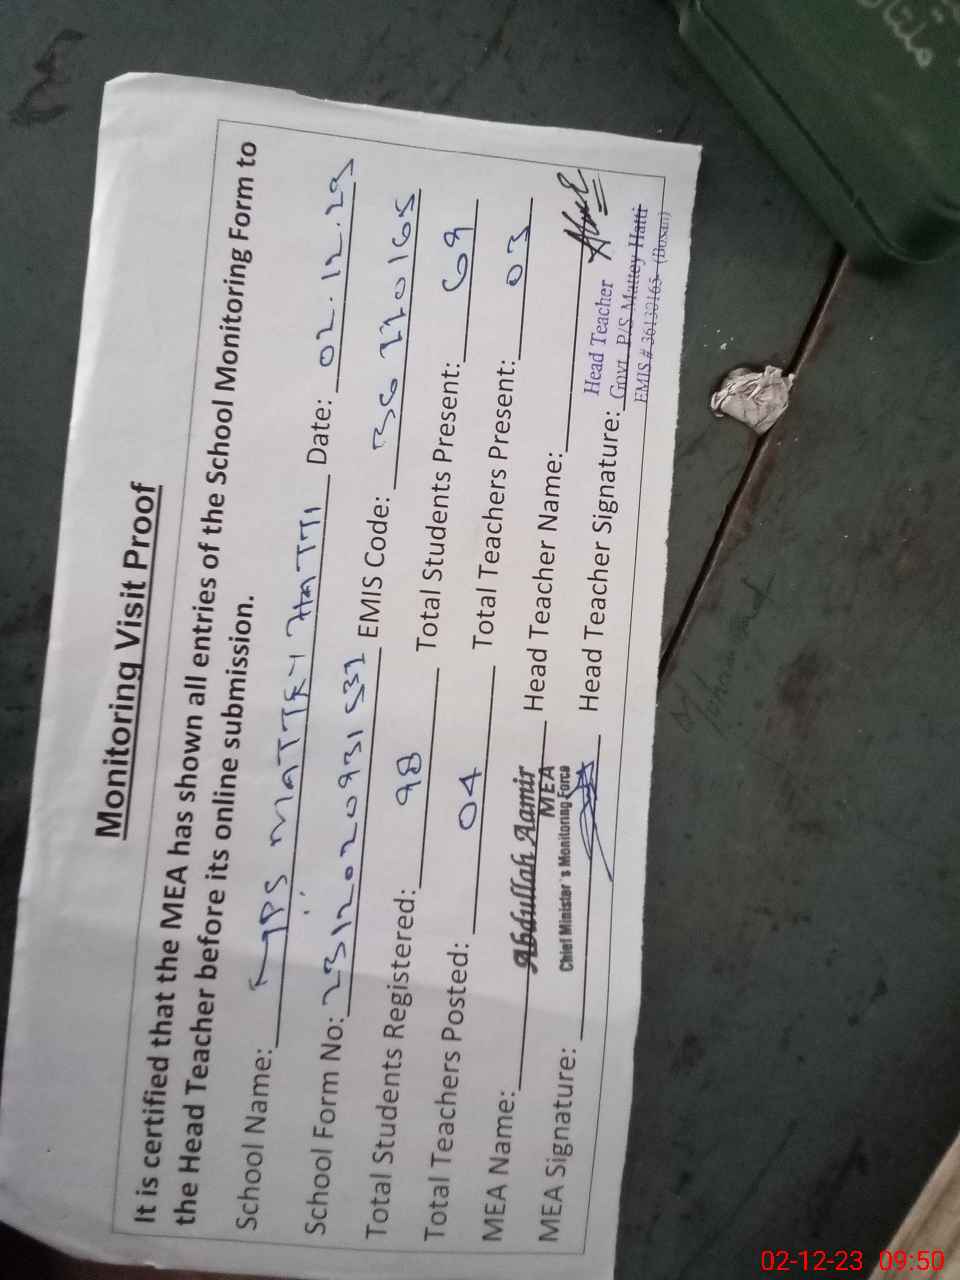 Monitoring Visit Proof
It is certified that the MEA has shown all entries of the School Monitoring Form to
the Head Teacher before its online submission.
School Name: MATTEY HATTI Date: 02.12.23
School Form No: 2312020931532 EMIS Code:
Total Students Registered: 98 Total Students Present: 69
Total Teachers Posted: 04 Total Teachers Present: 03
MEA Name: Abdullah Aamir Head Teacher Name:
MEA
Chief Minister's Monitoring Force
MEA Signature: Head Teacher Signature:
Head Teacher
Govt. P/S Mattey Hatti
EMIS # 36130165 (Bosan)
ملتان
02-12-23 09:50